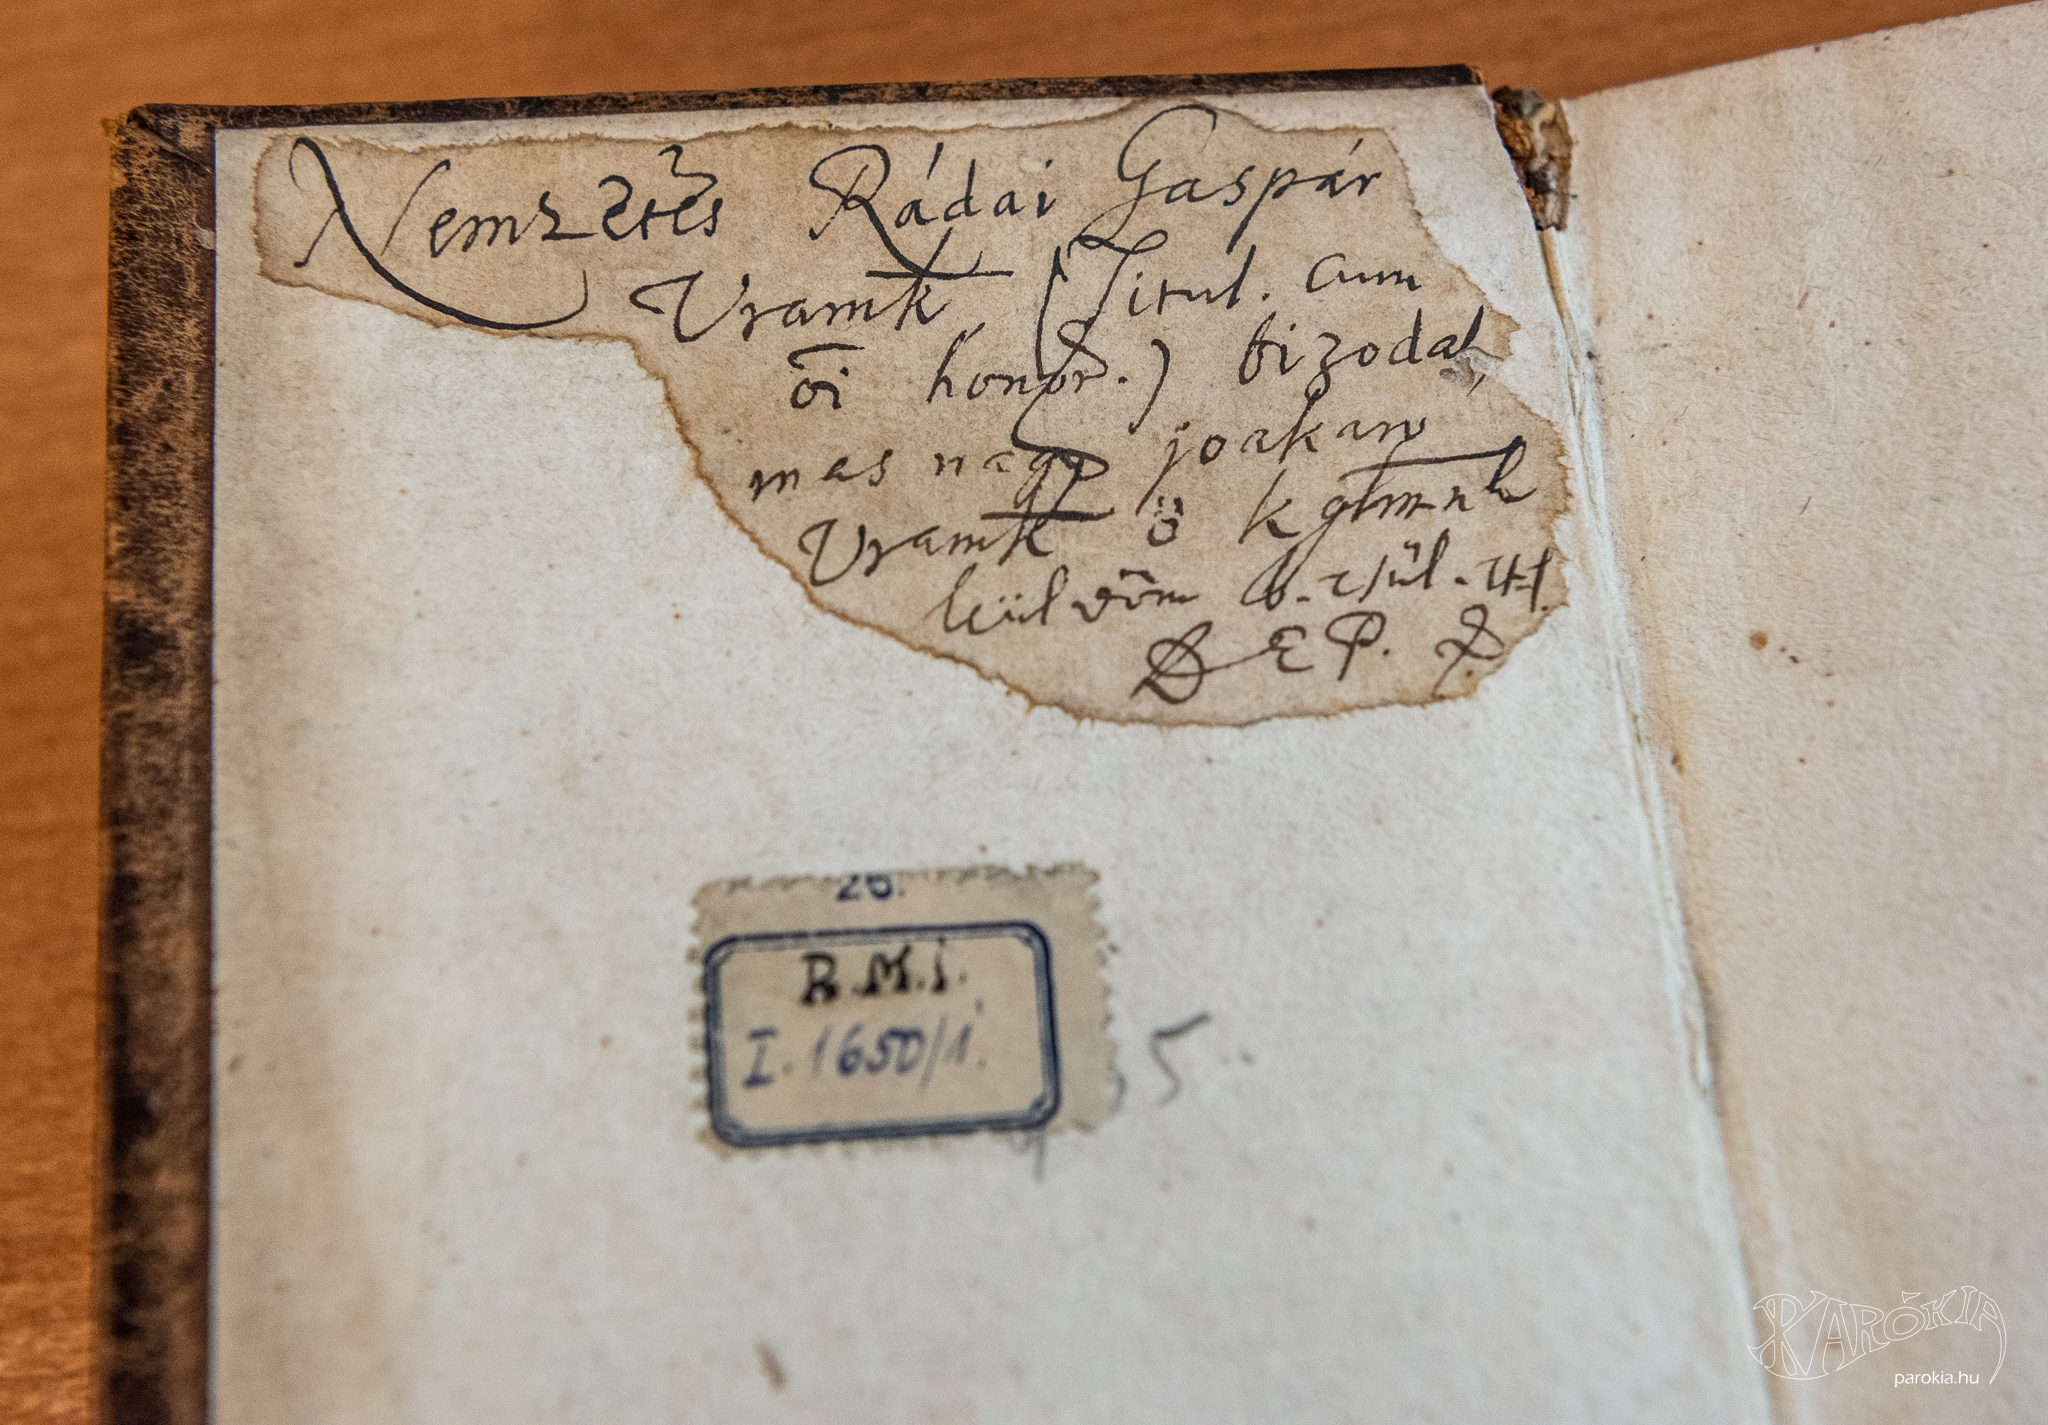 Nemzetes Rádai Gaspár
Uramk (Titul. cum
õi honor.) bizodal,
mas nagy joakaro
Uramk ö kglmnk
küldöm
D E P. P.
26.
R.M.I.
I. 1650/1.
5
PARÓKIA
parokia.hu